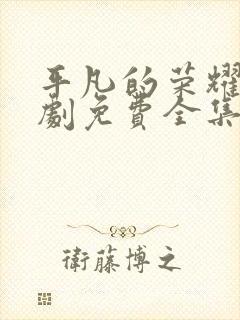 平凡的荣耀
劇免費全集
衛藤博之